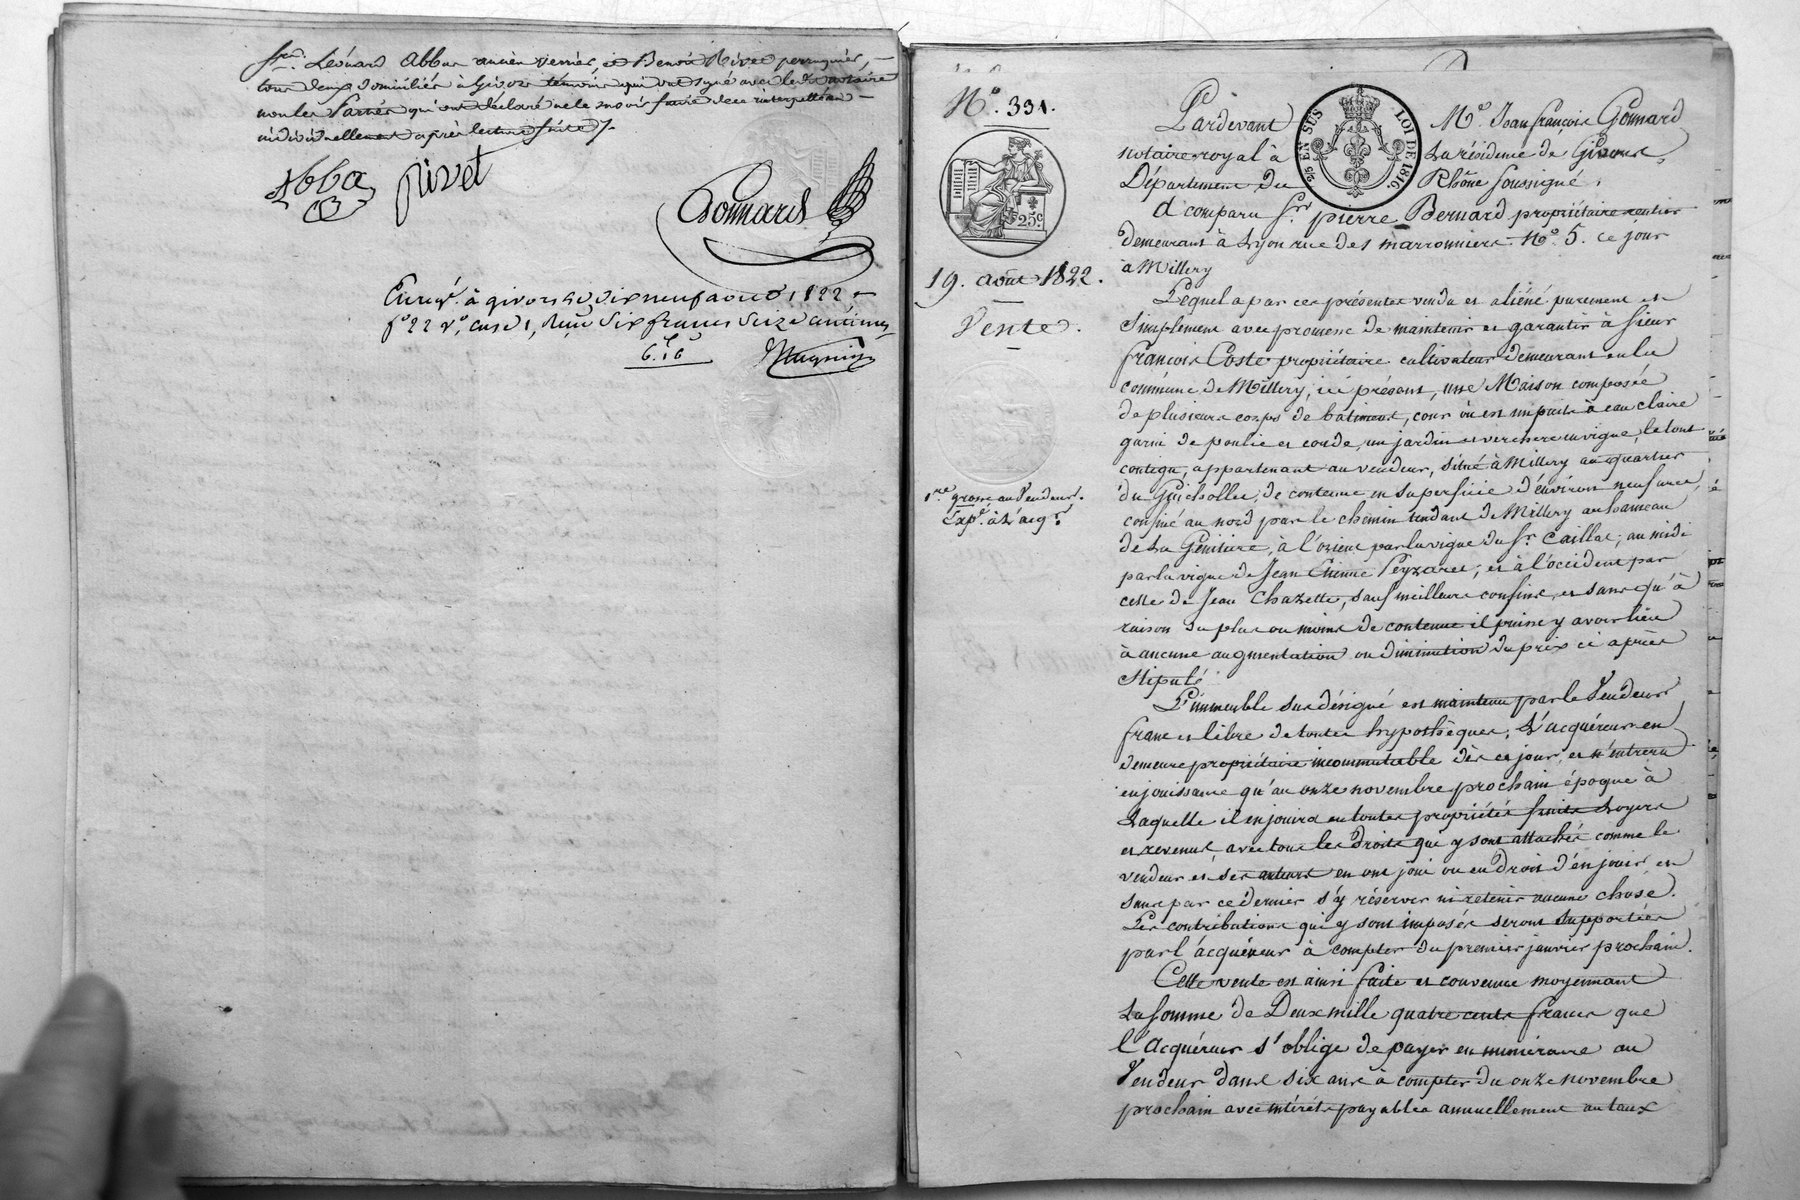 Srs. Léonard Abba ancien verrier, et Benoit Rivet perruquier,
tous deux domiciliés à Givors témoins qui ont signé avec le dt. notaire
non les Parties qui ont déclaré ne le savoir faire de ce interpellées
individuellement après lecture faite /.
Abba Rivet
Gonnard
Enregé. à givors le dix neuf août 1822
fo 22 vo, case 1, Reçu Six francs Seize centimes
6. f 16 c
No. 331.
25 EN SUS LOI DE 1816.
25 c.
19. août 1822.
Vente.
1re grosse au Vendeur.
Expé. à L'acqr.
Pardevant Me. Jean françois Gonnard
notaire royal à La résidence de Givors,
Département du Rhône soussigné,
A comparu Sr. pierre Bernard propriétaire rentier
demeurant à Lyon rue des marronniers No. 5. ce jour
à Millery
Lequel a par ces présentes vendu et aliéné purement et
simplement avec promesse de maintenir et garantir à Sieur
françois Coste propriétaire cultivateur demeurant en la
commune de Millery, ici présent, une Maison composée
de plusieurs corps de batiment, cour où est un puits à eau claire
garni de poulie et corde, un jardin et verchere en vigne, le tout
contigu, appartenant au vendeur, situé à Millery au quartier
du Guichollet, de contenue en superficie d'environ neuf ares,
confiné au nord par le chemin tendant de Millery au hameau
de La Génitière, à l'orient par la vigne du Sr. Caillat; au midi
par la vigne de Jean Etienne Peyzaret; et à l'occident par
celle de Jean Chazette, sauf meilleurs confins, et sans qu'à
raison du plus ou moins de contenue il puisse y avoir lieu
à aucune augmentation ou diminution du prix ci après
stipulé.
L'immeuble sus désigné est maintenu par le Vendeur
franc et libre de toutes hypothèques; L'acquéreur en
demeure propriétaire incommutable dès ce jour, et n'entrera
en jouissance qu'au onze novembre prochain époque à
Laquelle il en jouira en toutes propriétés fruits Loyers
et revenus, avec tous les droits qui y sont attachés comme le
vendeur et ses auteurs en ont joui ou eu droit d'en jouir, et
sans par ce dernier s'y réserver ni retenir aucune chose.
Les contributions qui y sont imposées seront supportées
par l'acquéreur à compter du premier janvier prochain.
Cette vente est ainsi faite et convenue moyennant
La somme de Deux mille quatre cents francs que
l'Acquéreur s'oblige de payer en numéraire au
Vendeur dans six ans à compter du onze novembre
prochain avec intérêts payables annuellement au taux